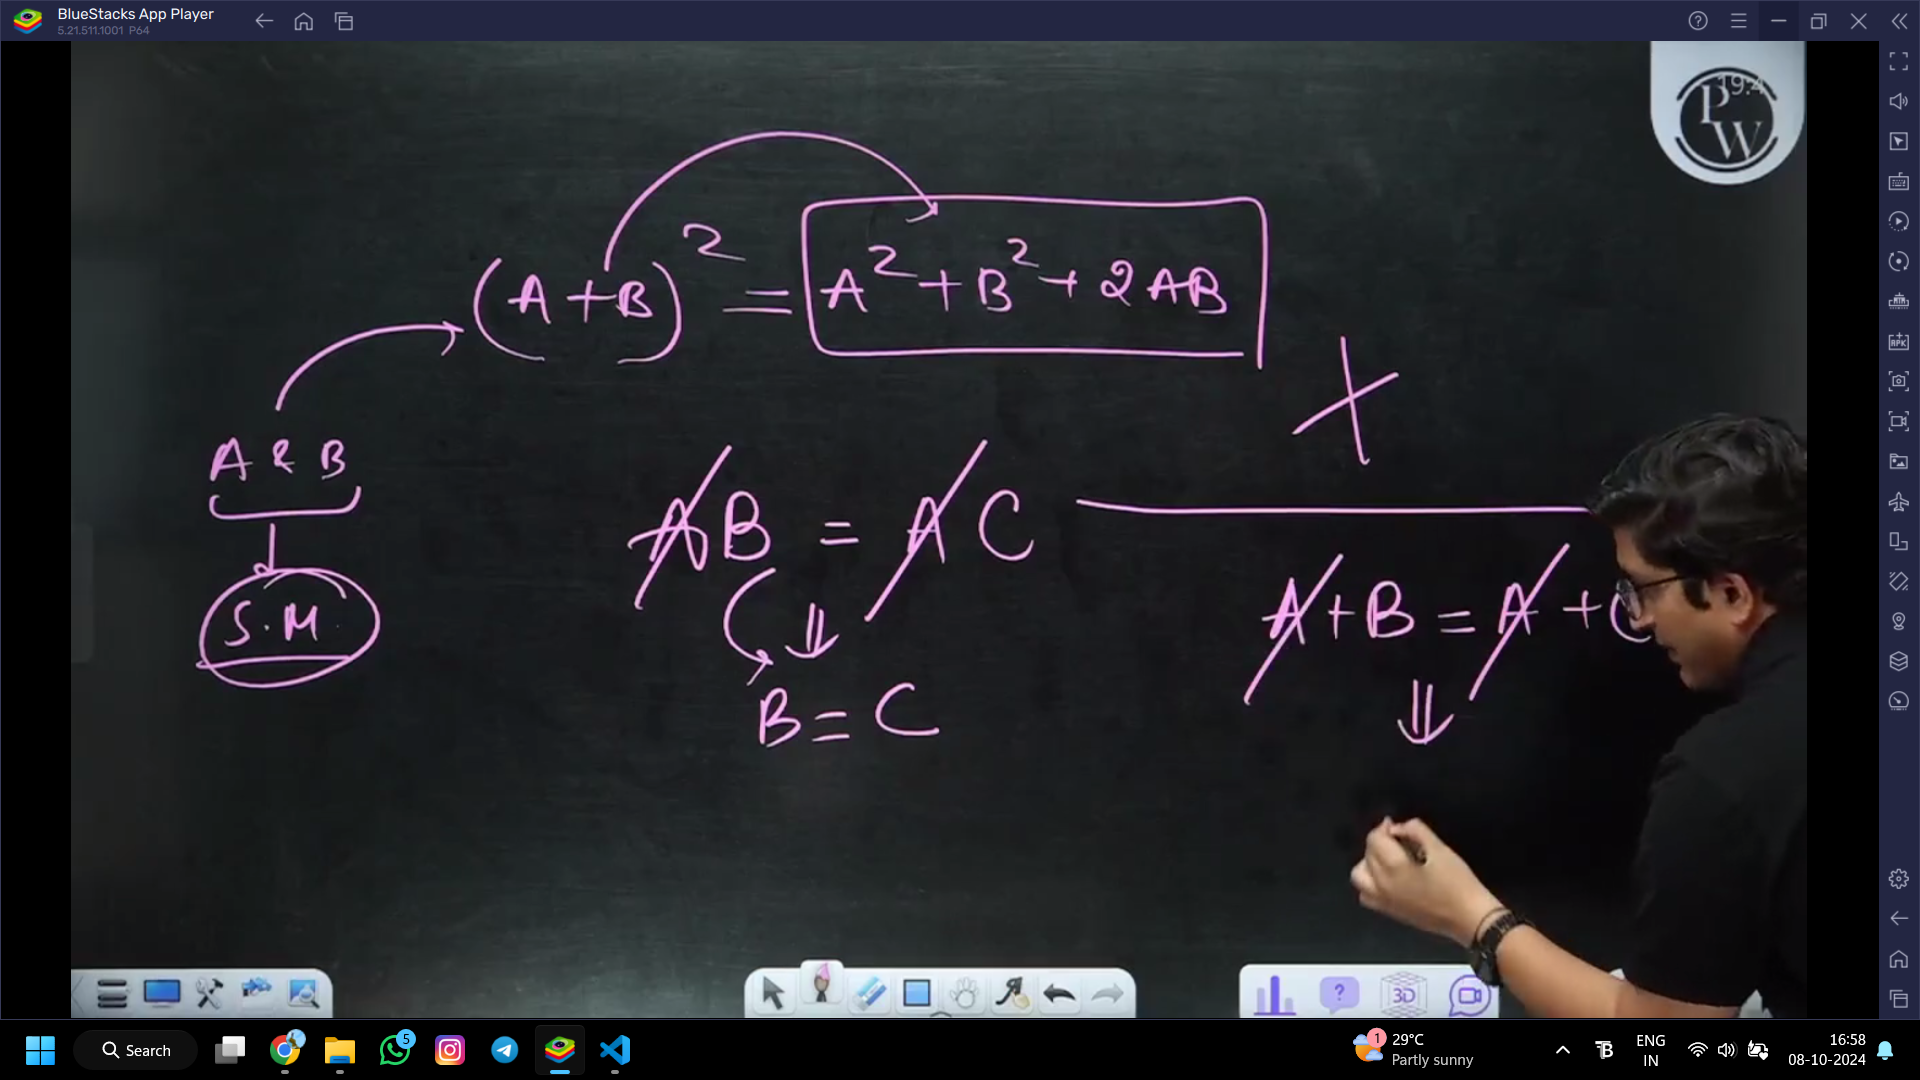 BlueStacks App Player
5.21.511.1001 P64
19:4
PW
(A + B)² = A² + B² + 2AB
A & B
S.M.
AB = AC
B = C
A + B = A + C
Search
5
1
29°C
Partly sunny
ENG
IN
16:58
08-10-2024
3D
?